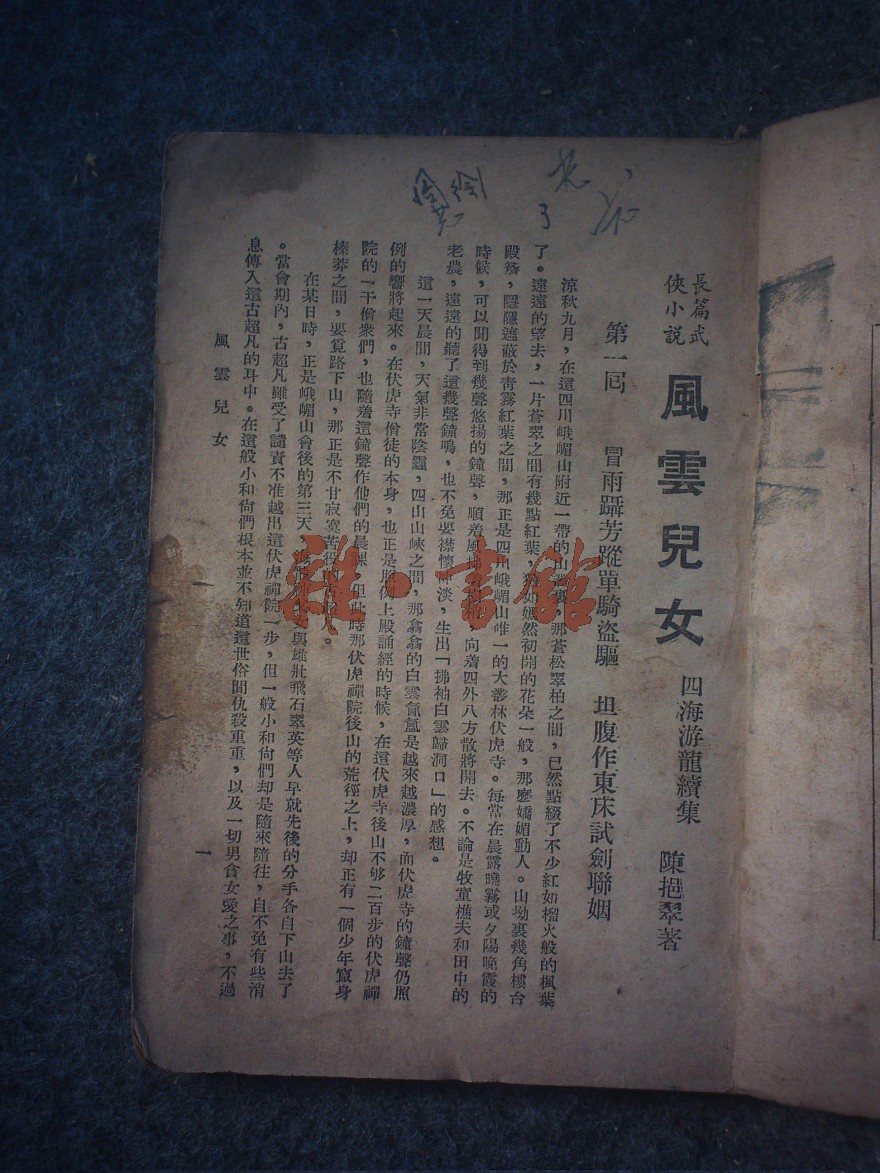 長篇武俠小說
風雲兒女
四海游龍續集
陳挹翠著
第一回　冒雨躡芳蹤單騎盜驅　坦腹作東床試劍聯姻
涼秋九月，在這四川峨嵋山附近一帶的山
那蒼松翠柏之間，已然點綴了不少紅如榴火般的楓葉
了。遠遠的望去，一片蒼翠之間有幾點紅葉，
嫣然初開的花朵一般，那麼嬌媚動人。山坳裏幾角樓台
殿脊，隱隱遮蔽於青霧紅葉之間，那正是四川峨嵋山唯一的大叢林伏虎寺。每當在晨露曉霧或夕陽晚霞的
時候，可以聞得到幾聲悠揚的鐘聲，順着風
向着四外八方散將開去。不論是牧童樵夫和田中的
老農，遠遠的聽了這幾聲鐘鳴，也不免要襟懷
淡，生出「拂袖白雲歸洞口」的感想。
這一天晨間，天氣非常陰霾，四山山峽之間，那翕翕的白雲氤氳是越來越濃厚，而伏虎寺的鐘聲仍照
例的響將起來。在伏虎寺僧徒的本身，也正是
上殿誦經的時候，在這伏虎寺後山不够二百步的伏虎禪
院的一干僧衆們，也隨着這鐘聲作他們的晨課
但此時那伏虎禪院後山的荒徑之上，却正有一個少年竄身
榛莽之間，要覓路下山，那正是不甘寂寞苦役
在某日時，正是峨嵋山會後的第三天
與雄壯飛石翠英等人早就先後的分手各自下山去了
。當會期內，古超凡雖受了譴責不准越出這伏虎禪院一步，但一般小和尙們却是隨來隨往，自不免有些消
息傳入這古超凡的耳中。在這般小和尙們根本並不知道這世俗間仇殺重重，以及一切男貪女愛之事，不過
風雲兒女
一
雜·書館